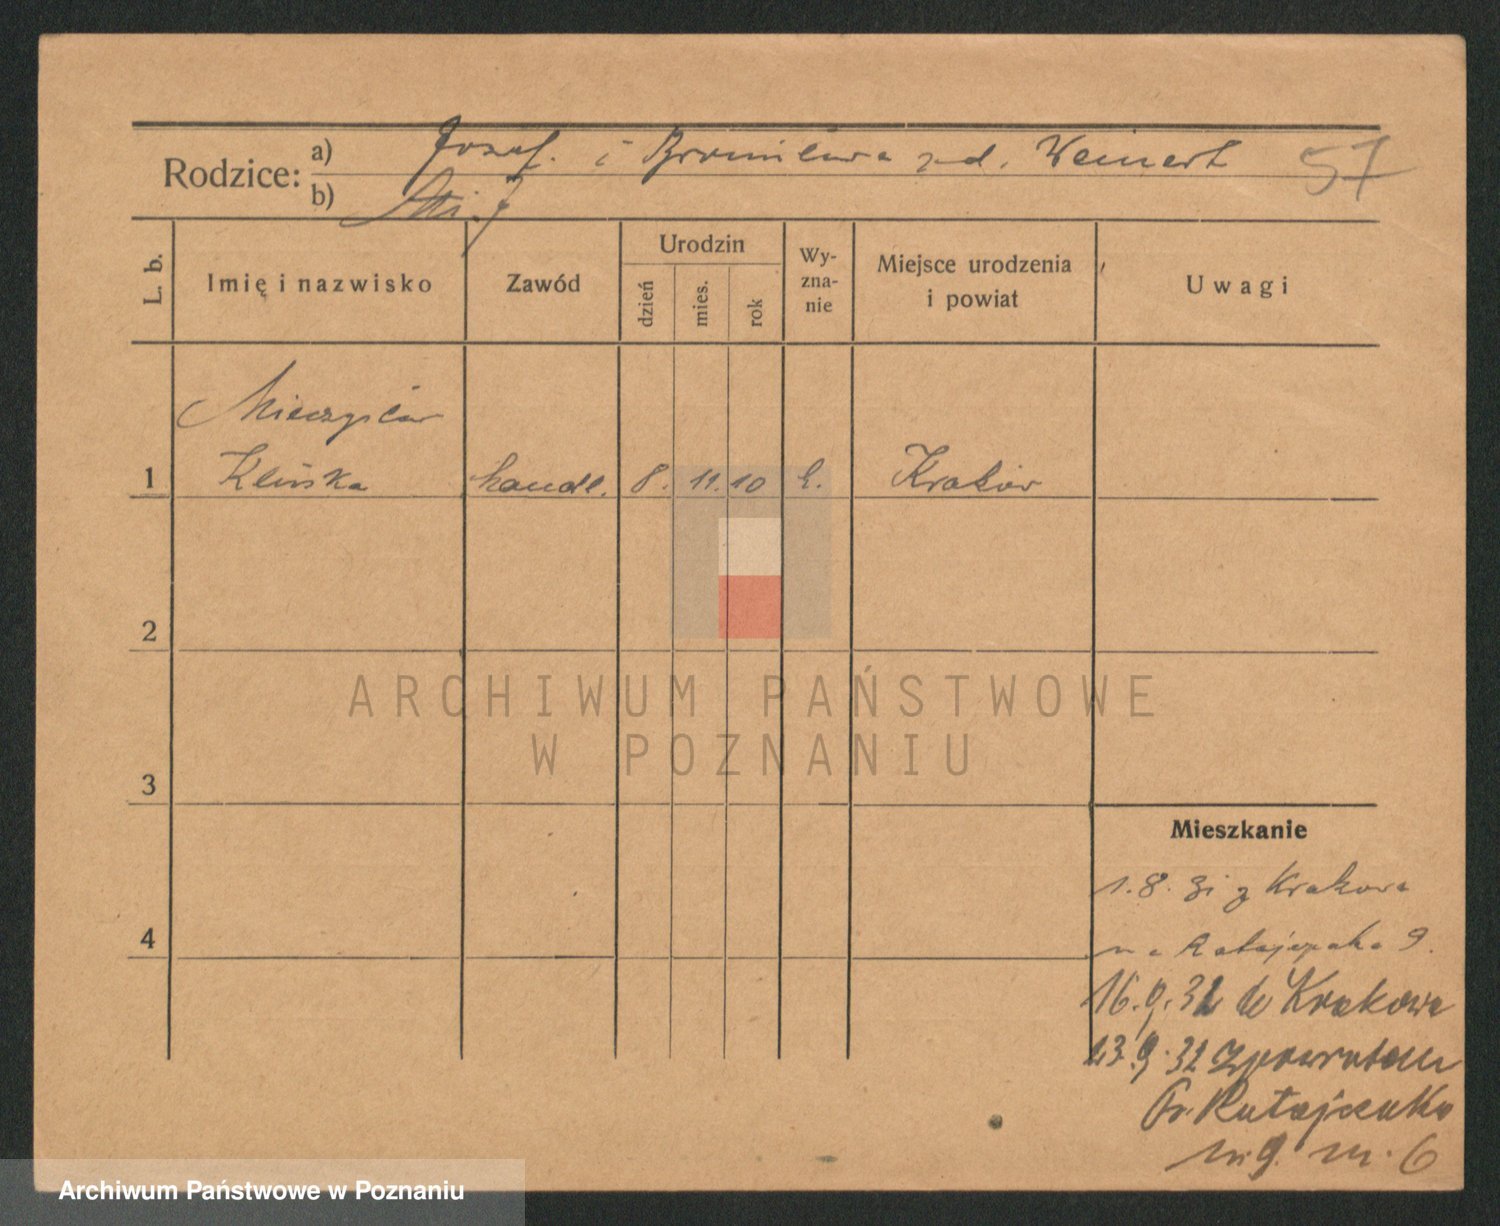 Rodzice: a) Józef. i Bronisława z d. Weinert 57
b)
L. b.
Imię i nazwisko
Zawód
Urodzin
dzień
mies.
rok
Wy-
zna-
nie
Miejsce urodzenia
i powiat
Uwagi
Mieczysław
1 Klińska handl. 8. 11. 10 k. Kraków
2
3
4
Mieszkanie
1.8.31 z Krakowa
na Ratajczaka 9.
16.9.32 do Krakowa
23.9.32 z powrotem
Fr. Ratajczaka
nr. 9. m. 6
ARCHIWUM PAŃSTWOWE
W POZNANIU
Archiwum Państwowe w Poznaniu